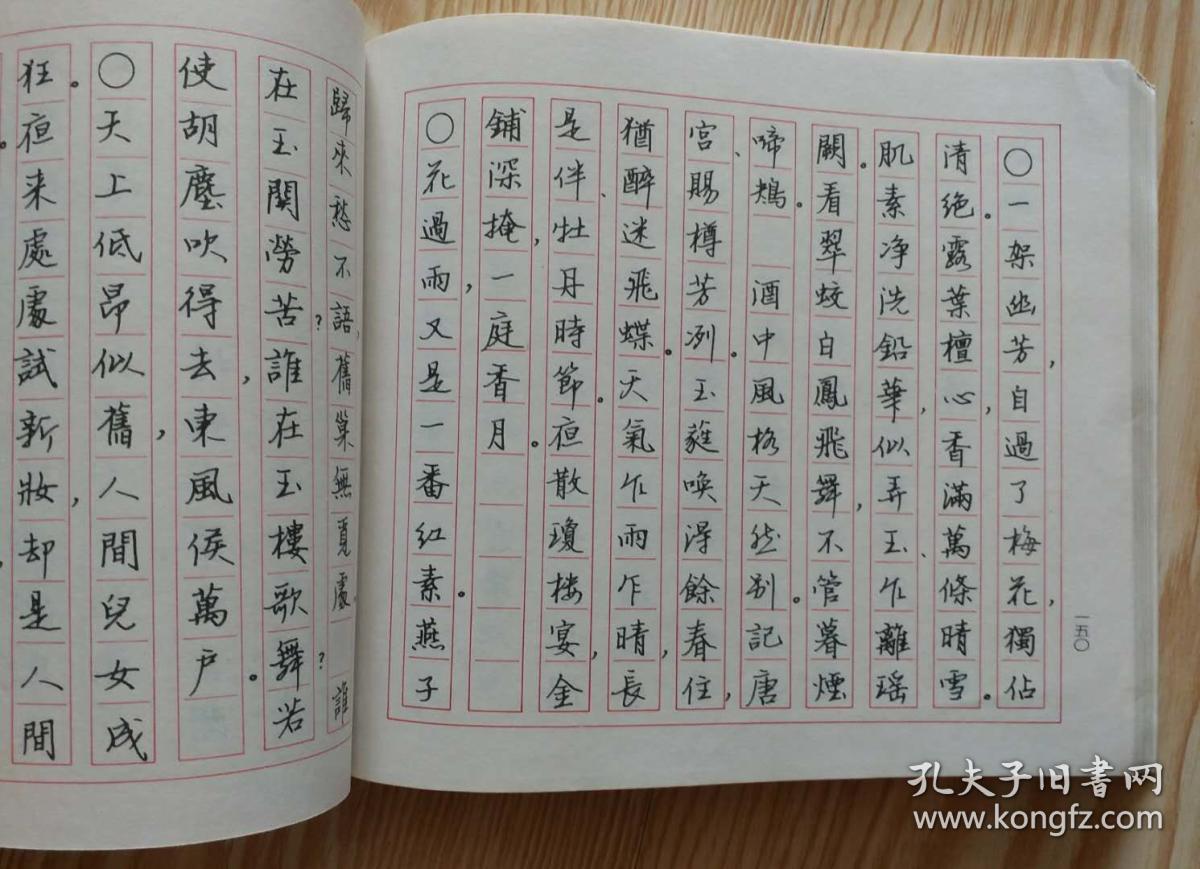 ○一架幽芳，自過了梅花，獨佔
清绝。露葉檀心，香滿萬條晴雪。
肌素净洗鉛華，似弄玉、乍離瑶
闕。看翠蛟白鳳飛舞，不管暮煙
啼鴂。　酒中風格天然别。記唐
宮、賜樽芳冽。玉蕤唤得餘春住，
猶醉迷飛蝶。天氣乍雨乍晴，長
是伴、牡丹時節。夜散瓊楼宴，金
鋪深掩，一庭香月。
○花過雨，又是一番红素。燕子
歸來愁不語，舊巢無覓處。　誰
在玉關勞苦？誰在玉樓歌舞？若
使胡塵吹得去，東風侯萬户。
○天上低昂似舊，人間兒女成
狂。夜来處處試新妝，却是人間
一五〇
孔夫子旧書网
www.kongfz.com